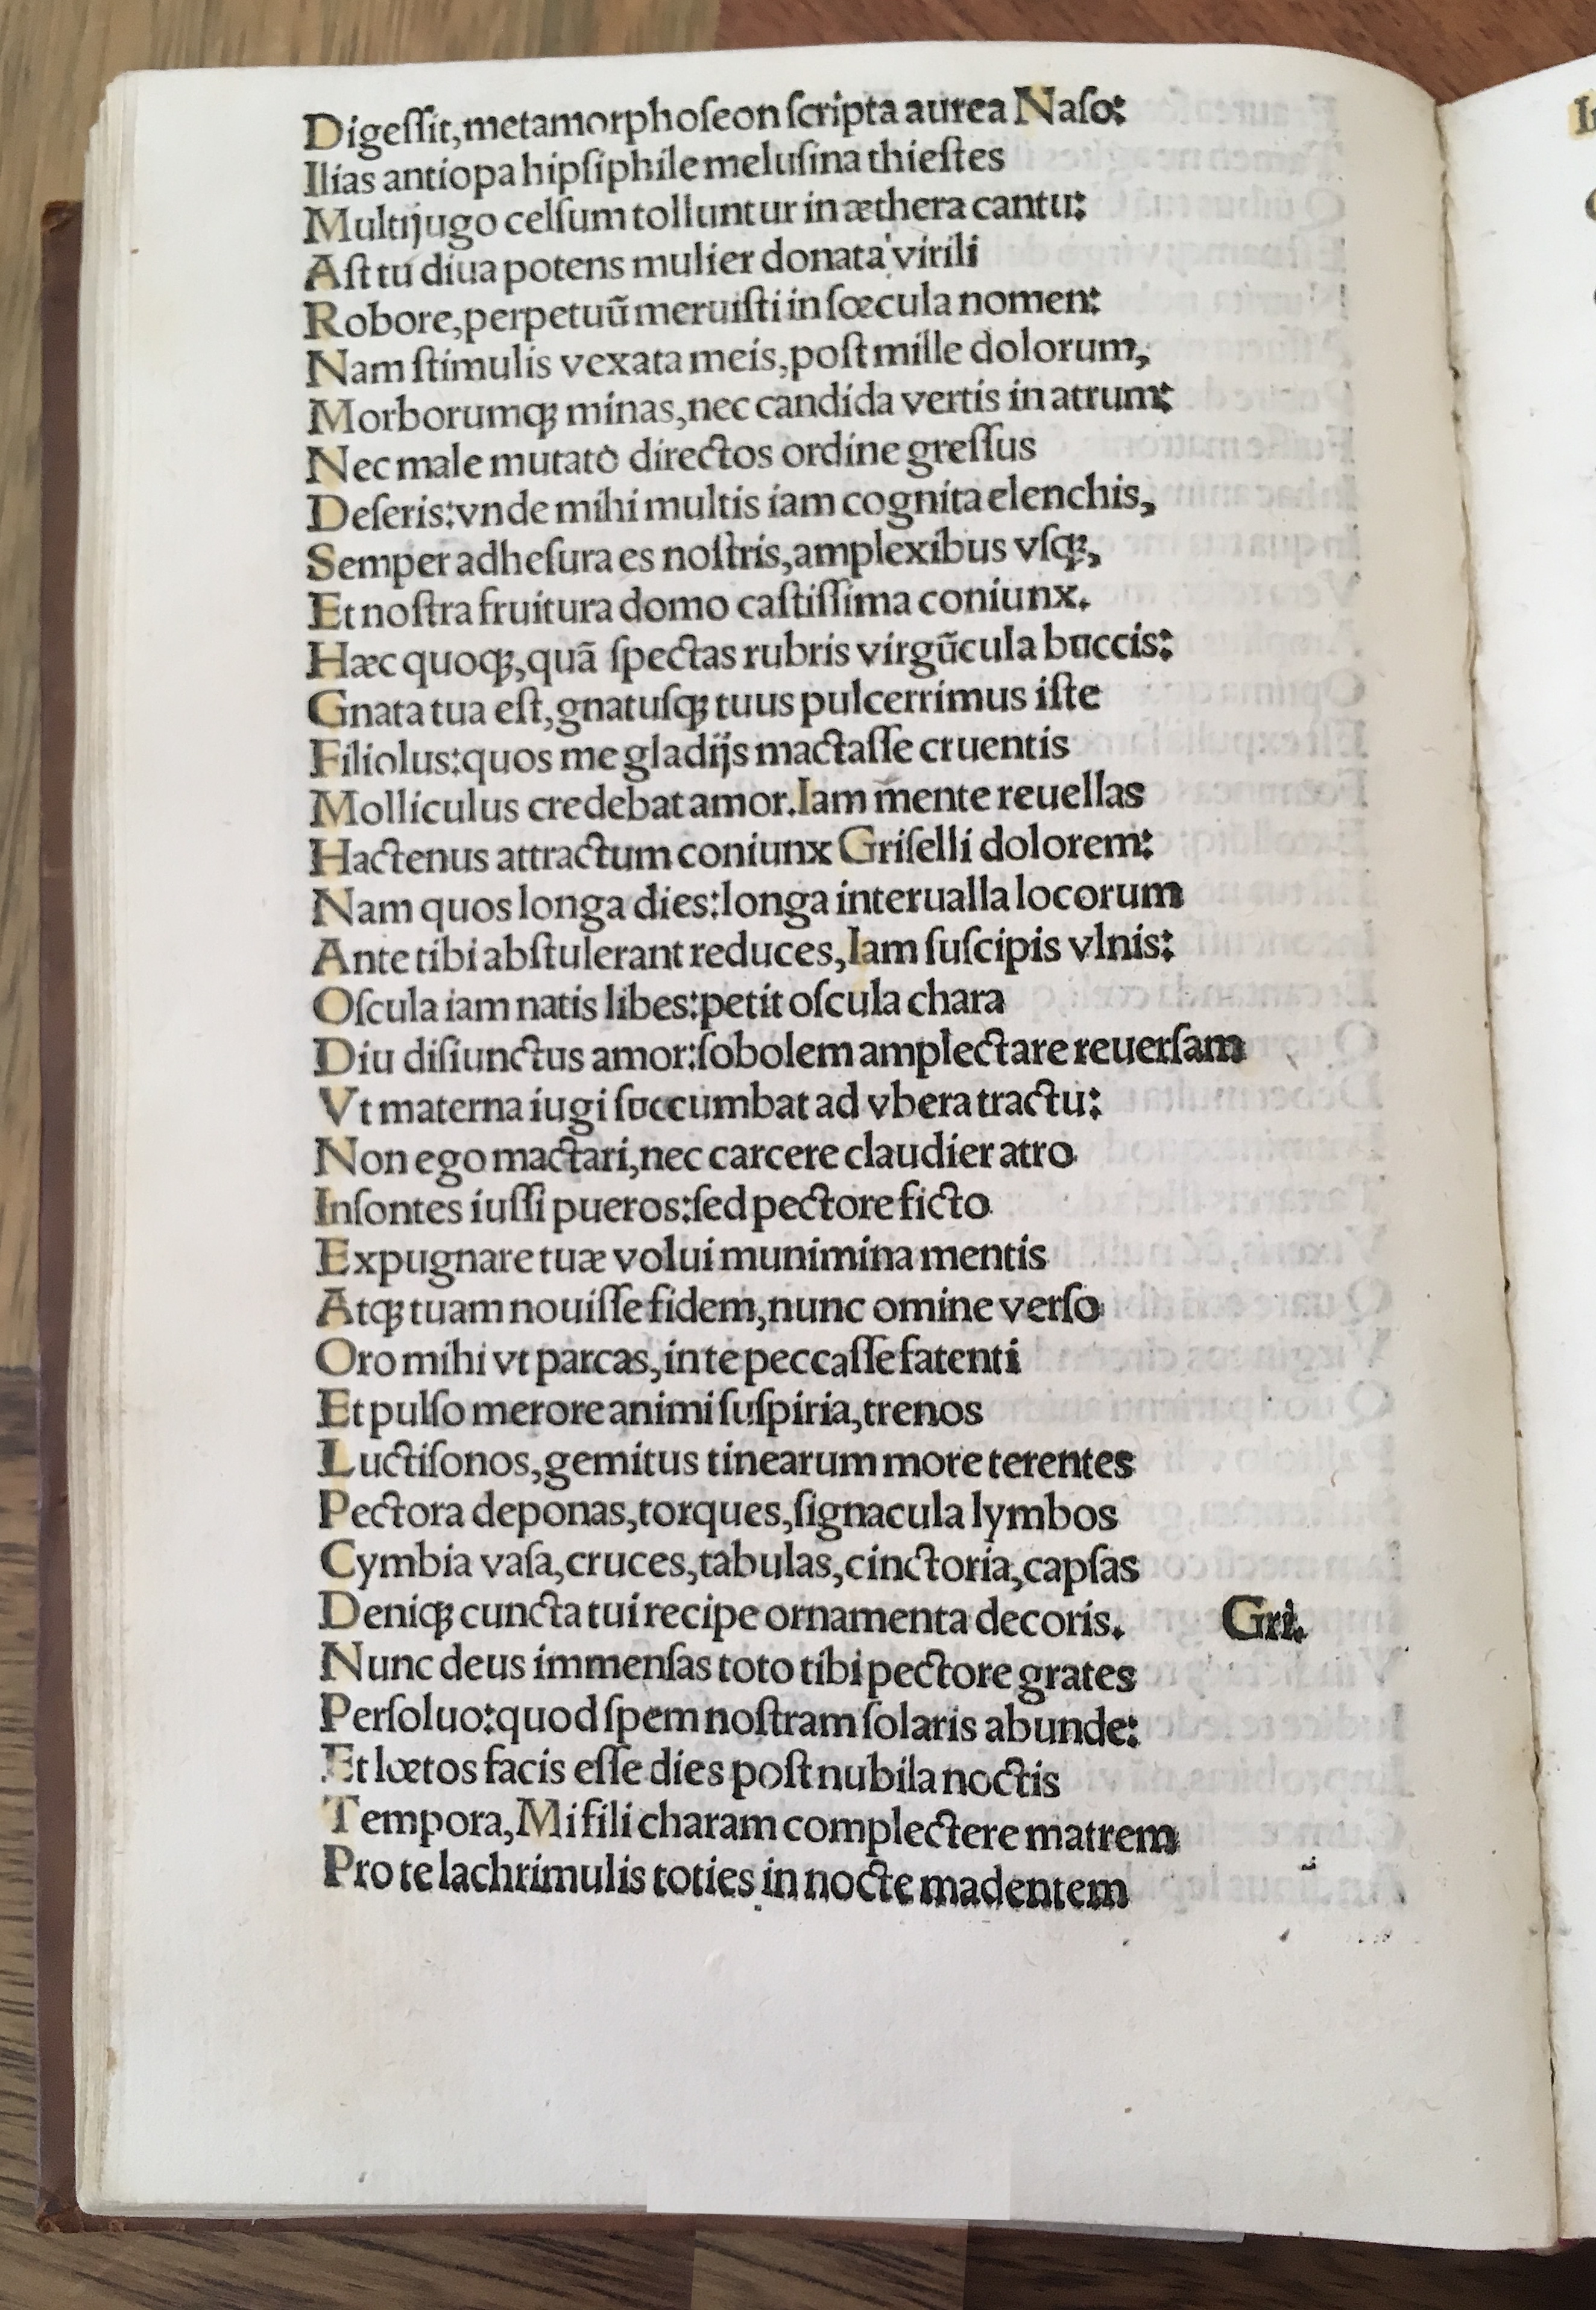 Digeſſit,metamorphoſeon ſcripta aurea Naſo:
Ilias antiopa hipſiphile meluſina thieſtes
Multijugo celſum tolluntur in æthera cantu:
Aſt tu diua potens mulier donata virili
Robore,perpetuū meruiſti in ſœcula nomen:
Nam ſtimulis vexata meis,poſt mille dolorum,
Morborumqꝫ minas,nec candida vertis in atrum:
Nec male mutato directos ordine greſſus
Deſeris:vnde mihi multis iam cognita elenchis,
Semper adheſura es noſtris,amplexibus vſqꝫ,
Et noſtra fruitura domo caſtiſſima coniunx.
Hæc quoqꝫ,quā ſpectas rubris virgūcula buccis:
Gnata tua eſt,gnatuſqꝫ tuus pulcerrimus iſte
Filiolus:quos me gladijs mactaſſe cruentis
Molliculus credebat amor.Iam mente reuellas
Hactenus attractum coniunx Griſelli dolorem:
Nam quos longa dies:longa interualla locorum
Ante tibi abſtulerant reduces,Iam ſuſcipis vlnis:
Oſcula iam natis libes:petit oſcula chara
Diu diſiunctus amor:ſobolem amplectare reuerſam
Vt materna iugi ſuccumbat ad vbera tractu:
Non ego mactari,nec carcere claudier atro
Inſontes iuſſi pueros:ſed pectore ficto
Expugnare tuæ volui munimina mentis
Atqꝫ tuam nouiſſe fidem,nunc omine verſo
Oro mihi vt parcas,in te peccaſſe fatenti
Et pulſo merore animi ſuſpiria,trenos
Luctiſonos,gemitus tinearum more terentes
Pectora deponas,torques,ſignacula lymbos
Cymbia vaſa,cruces,tabulas,cinctoria,capſas
Deniqꝫ cuncta tui recipe ornamenta decoris. Gri.
Nunc deus immenſas toto tibi pectore grates
Perſoluo:quod ſpem noſtram ſolaris abunde:
Et lœtos facis eſſe dies poſt nubila noctis
Tempora,Mi fili charam complectere matrem
Pro te lachrimulis toties in nocte madentem